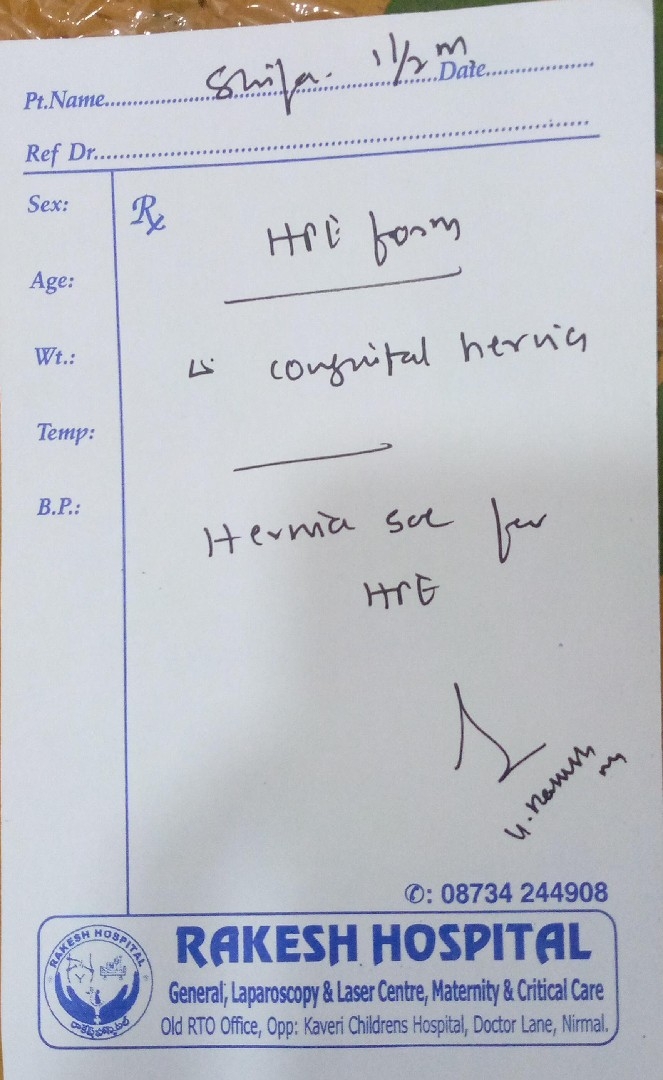 Pt.Name.......... Shifa. 1 1/2 m Date..........
Ref Dr..........
Sex:
Rx
HPE form
Age:
Wt.:
Δ: congnital hernia
Temp:
B.P.:
Hernia sac for
HPE
✆: 08734 244908
RAKESH HOSPITAL
RAKESH HOSPITAL
General, Laparoscopy & Laser Centre, Maternity & Critical Care
Old RTO Office, Opp: Kaveri Childrens Hospital, Doctor Lane, Nirmal.